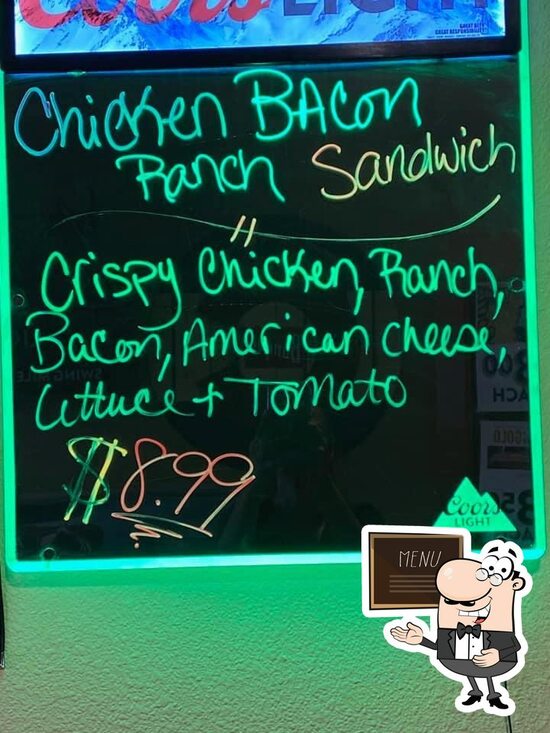 Coors LIGHT
GREAT BEER
GREAT RESPONSIBILITY
Chicken BACon
Ranch Sandwich
Crispy Chicken, Ranch,
Bacon, American cheese,
Lettuce + Tomato
$8.99
Coors
LIGHT
MENU